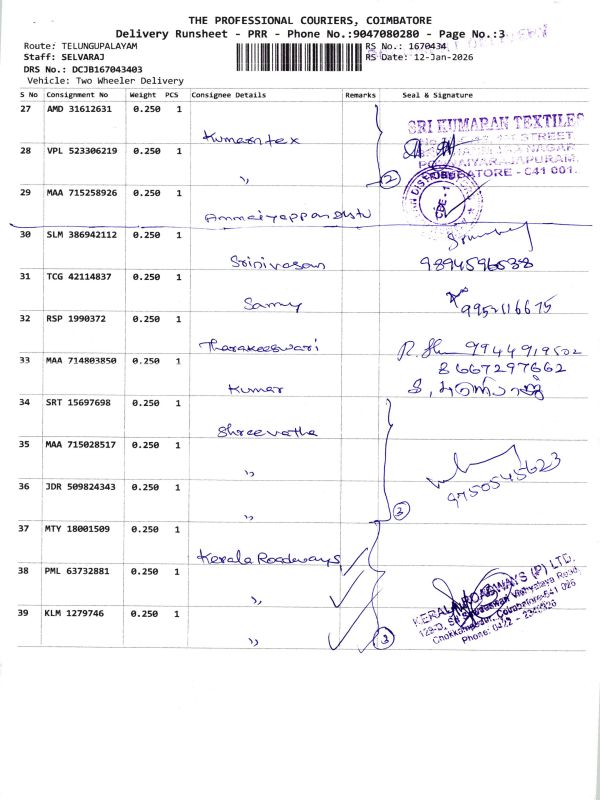 THE PROFESSIONAL COURIERS, COIMBATORE
Delivery Runsheet - PRR - Phone No.:9047080280 - Page No.:3
Route: TELUNGUPALAYAM
RS No.: 1670434
Staff: SELVARAJ
RS Date: 12-Jan-2026
DRS No.: DCJB167043403
Vehicle: Two Wheeler Delivery
S No Consignment No Weight PCS Consignee Details Remarks Seal & Signature
27 AMD 31612631 0.250 1
Kumarntex
SRI KUMARAN TEXTILES
STREET
NAGAR
28 VPL 523306219 0.250 1
AIYARAJAPURAM,
COIMBATORE - 641 001.
,, 2
29 MAA 715258926 0.250 1
Ammaiyappan
30 SLM 386942112 0.250 1
Srinivasan 9894596538
31 TCG 42114837 0.250 1
Samy 9952116675
32 RSP 1990372 0.250 1
Tharakeeswari 9944919502
33 MAA 714803850 0.250 1
8667297662
Kumar
34 SRT 15697698 0.250 1
Shreevatha
35 MAA 715028517 0.250 1
,,
9750545623
36 JDR 509824343 0.250 1
,, 3
37 MTY 18001509 0.250 1
Kerala Roadways
38 PML 63732881 0.250 1
,,
KERALA ROADWAYS (P) LTD.
Vidhyalaya Road,
Coimbatore-641 026
Phone: 0422 -
39 KLM 1279746 0.250 1
,, 3